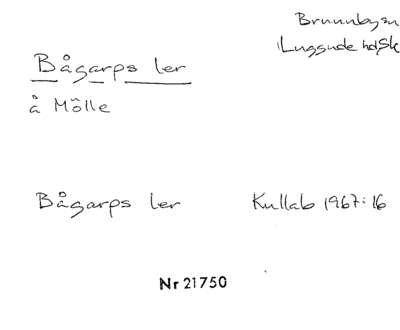 Brunnbysn
Luggude hd, Sk
Bågarps ler
å Mölle
Bågarps ler Kullab 1967:16
Nr 21750